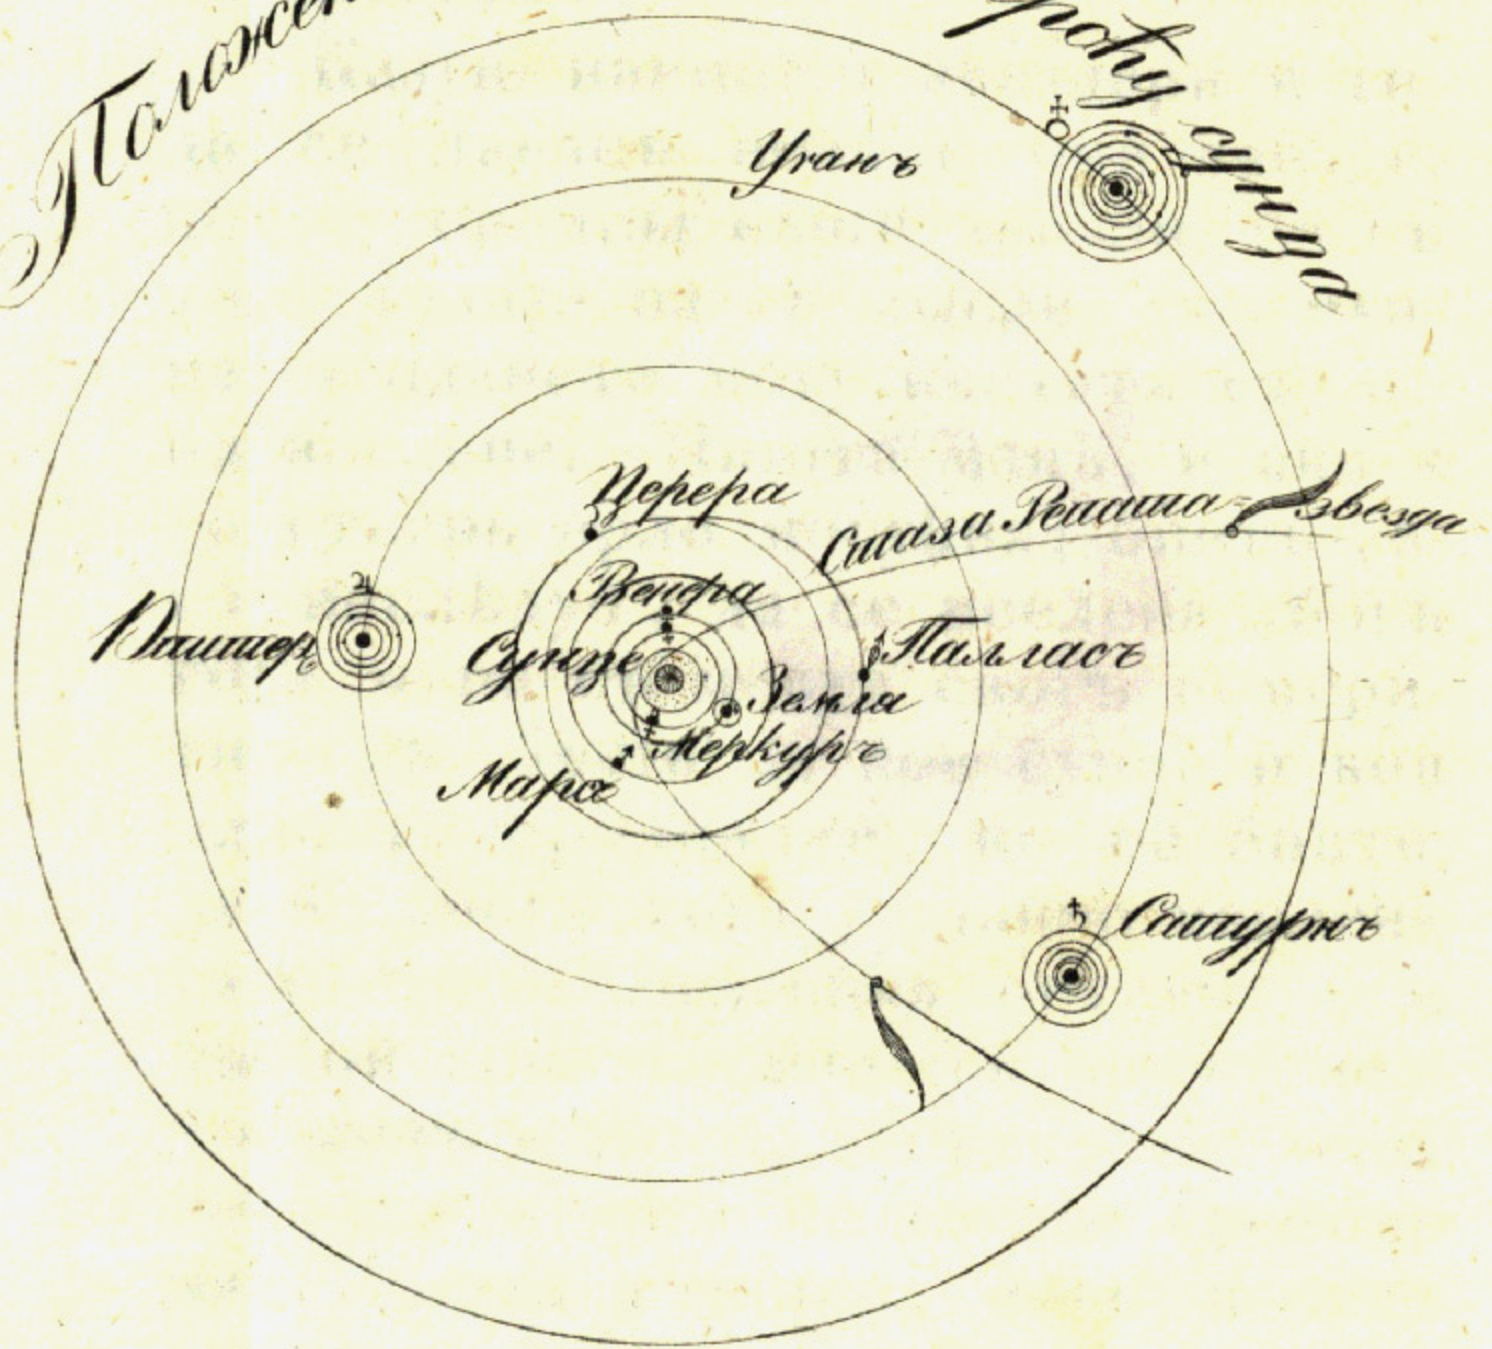 Положен
роћу сунца
Уранъ
Церера
Стаза Репаша=звезда
Венера
Палласъ
Сунце
Земла
Меркуръ
Марсъ
Сатурнъ